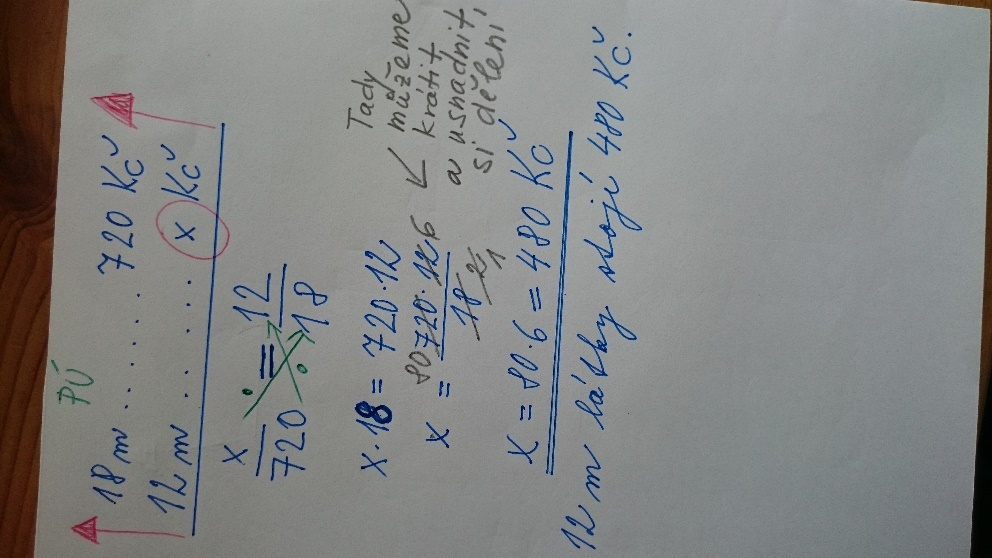 PÚ
18 m ...... 720 Kč
12 m ...... x Kč
x/720 = 12/18
x·18 = 720·12
x = 80 720·12 6 / 18 2 1
Tady
můžeme
krátit
a usnadnit
si dělení,
x = 80·6 = 480 Kč
12 m látky stojí 480 Kč.